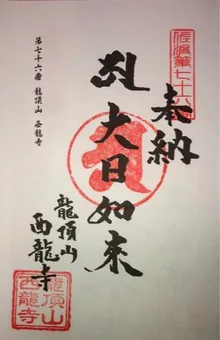 佐渡第七十六番
奉納
大日如来
龍頂山
西龍寺
第七十六番 龍頂山 西龍寺
龍頂山
西龍寺